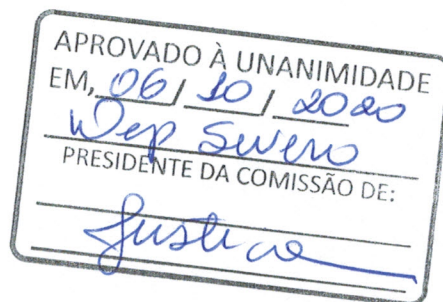 APROVADO À UNANIMIDADE
EM, 06 / 10 / 2020
Dep
PRESIDENTE DA COMISSÃO DE:
Justiça